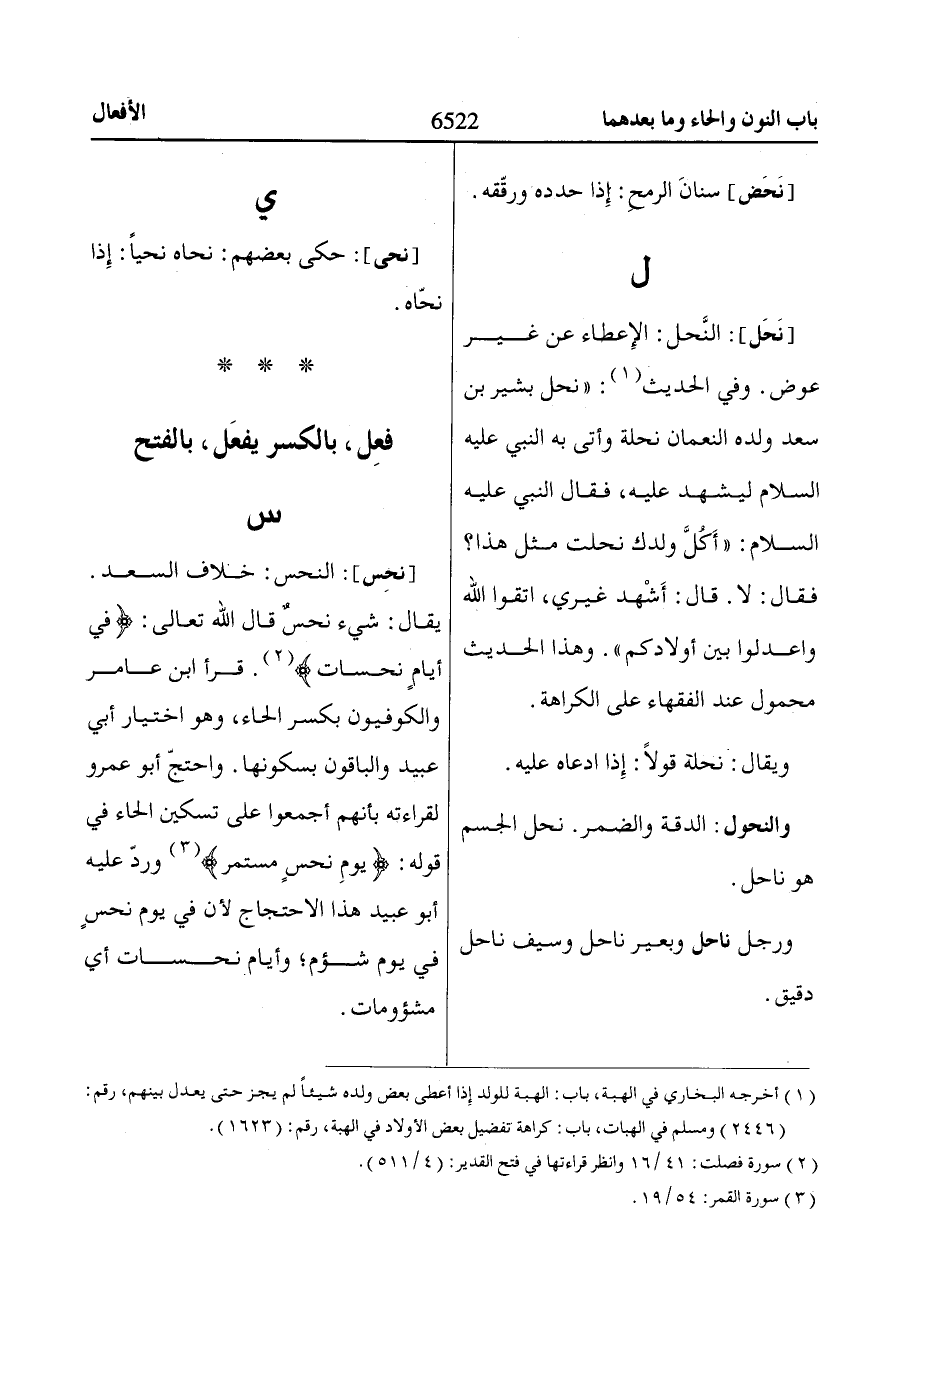 باب النون والحاء وما بعدهما
6522
الأفعال
[نَحَض] سنانَ الرمحِ: إذا حدده ورقّقه.
ل
[نَحَل]: النَّحل: الإعطاء عن غيـر
عوض. وفي الحديث(١): «نحل بشير بن
سعد ولده النعمان نحلة وأتى به النبي عليه
السلام ليشهد عليه، فقال النبي عليه
السلام: «أَكُلَّ ولدك نحلت مثل هذا؟
فقال: لا. قال: أَشْهد غيري، اتقوا الله
واعدلوا بين أولادكم». وهذا الحديث
محمول عند الفقهاء على الكراهة.
ويقال: نحلة قولاً: إذا ادعاه عليه.
والنحول: الدقة والضمر. نحل الجسم
هو ناحل.
ورجل ناحل وبعير ناحل وسيف ناحل
دقيق.
ي
[نحى]: حكى بعضهم: نحاه نحياً: إذا
نحّاه.
* * *
فعِل، بالكسر يفعَل، بالفتح
س
[نحِس]: النحس: خلاف السعد.
يقال: شيء نحسٌ قال الله تعالى: ﴿في
أيامٍ نحسات﴾(٢). قرأ ابن عامر
والكوفيون بكسر الحاء، وهو اختيار أبي
عبيد والباقون بسكونها. واحتجّ أبو عمرو
لقراءته بأنهم أجمعوا على تسكين الحاء في
قوله: ﴿يوم نحسٍ مستمر﴾(٣) وردّ عليه
أبو عبيد هذا الاحتجاج لأن في يوم نحسٍ
في يوم شؤم؛ وأيام نحسات أي
مشؤومات.
(١) أخرجه البخاري في الهبة، باب: الهبة للولد إذا أعطى بعض ولده شيئاً لم يجز حتى يعدل بينهم، رقم:
(٢٤٤٦) ومسلم في الهبات، باب: كراهة تفضيل بعض الأولاد في الهبة، رقم: (١٦٢٣).
(٢) سورة فصلت: ١٦/٤١ وانظر قراءتها في فتح القدير: (٥١١/٤).
(٣) سورة القمر: ١٩/٥٤.